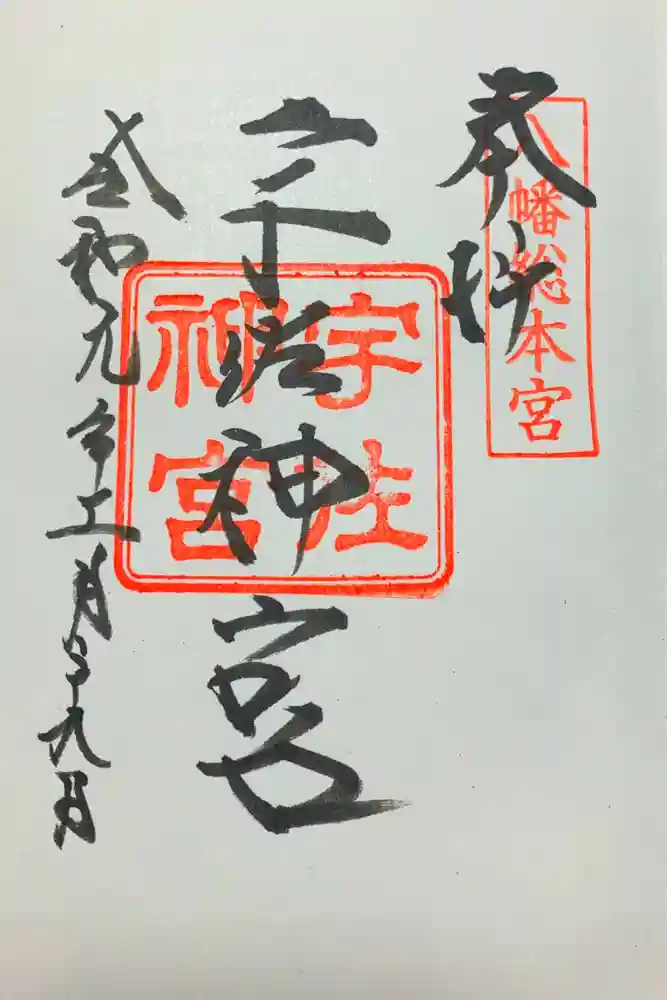 奉拝
八幡総本宮
宇佐神宮
宇佐
神宮
令和元年五月二十九日